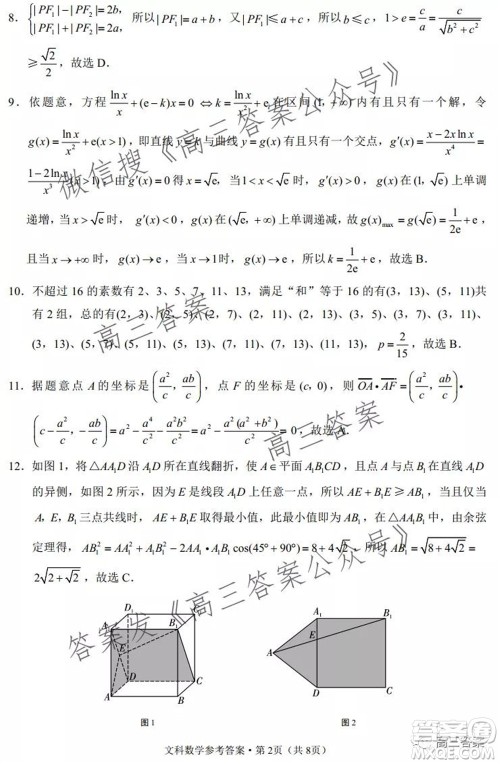 8. {|PF₁|−|PF₂|=2b, |PF₁|+|PF₂|=2a, 所以|PF₁|=a+b，又|PF₁|≤a+c，所以b≤c，1>e=c/a=c/√(b²+c²)
≥√2/2，故选 D．
9. 依题意，方程 lnx/x+(e−k)x=0 ⇔ k=lnx/x²+e 在区间(1，+∞)内有且只有一个解，令
g(x)=lnx/x²+e(x>1)，即直线y=k与曲线y=g(x)有且只有一个交点，g′(x)=(x−2xlnx)/x⁴=
(1−2lnx)/x³(x>1)，由g′(x)=0得x=√e，当1<x<√e时，g′(x)>0，g(x)在(1，√e)上单调
递增，当x>√e时，g′(x)<0，g(x)在(√e，+∞)上单调递减，故g(x)max=g(√e)=1/2e+e，
且当x→+∞时，g(x)→e，当x→1时，g(x)→e，所以k=1/2e+e，故选 B．
10. 不超过 16 的素数有 2、3、5、7、11、13，满足“和”等于 16 的有(3，13)、(5，11)共
有 2 组，总的有(2，3)、(2，5)、(2，7)、(2，11)、(2，13)、(3，5)、(3，7)、(3，11)、
(3，13)、(5，7)、(5，11)、(5，13)、(7，11)、(7，13)、(11，13)，p=2/15，故选 B．
11. 据题意点 A 的坐标是(a²/c，ab/c)，点 F 的坐标是(c，0)，则OA•AF=(a²/c，ab/c)•
(c−a²/c，−ab/c)=a²−a⁴/c²−a²b²/c²=a²−a²(a²+b²)/c²=0，故选 A．
12. 如图 1，将△AA₁D 沿 A₁D 所在直线翻折，使 A∈平面A₁B₁CD，且点 A 与点 B₁ 在直线 A₁D
的异侧，如图 2 所示，因为 E 是线段 A₁D 上任意一点，所以 AE+B₁E≥AB₁，当且仅当
A，E，B₁ 三点共线时，AE+B₁E 取得最小值，此最小值即为AB₁，在△AA₁B₁中，由余弦
定理得，AB₁²=AA₁²+A₁B₁²−2AA₁•A₁B₁cos(45°+90°)=8+4√2，所以AB₁=√(8+4√2)=
2√(2+√2)，故选 C．
D₁ C₁ A₁ B₁ E D C A B
A₁ B₁ E A D C
图 1 图 2
文科数学参考答案 • 第 2页（共 8页）
微信搜《高三答案公众号》
高三答案
高三答案
答案发《高三答案公众号》
高三答案